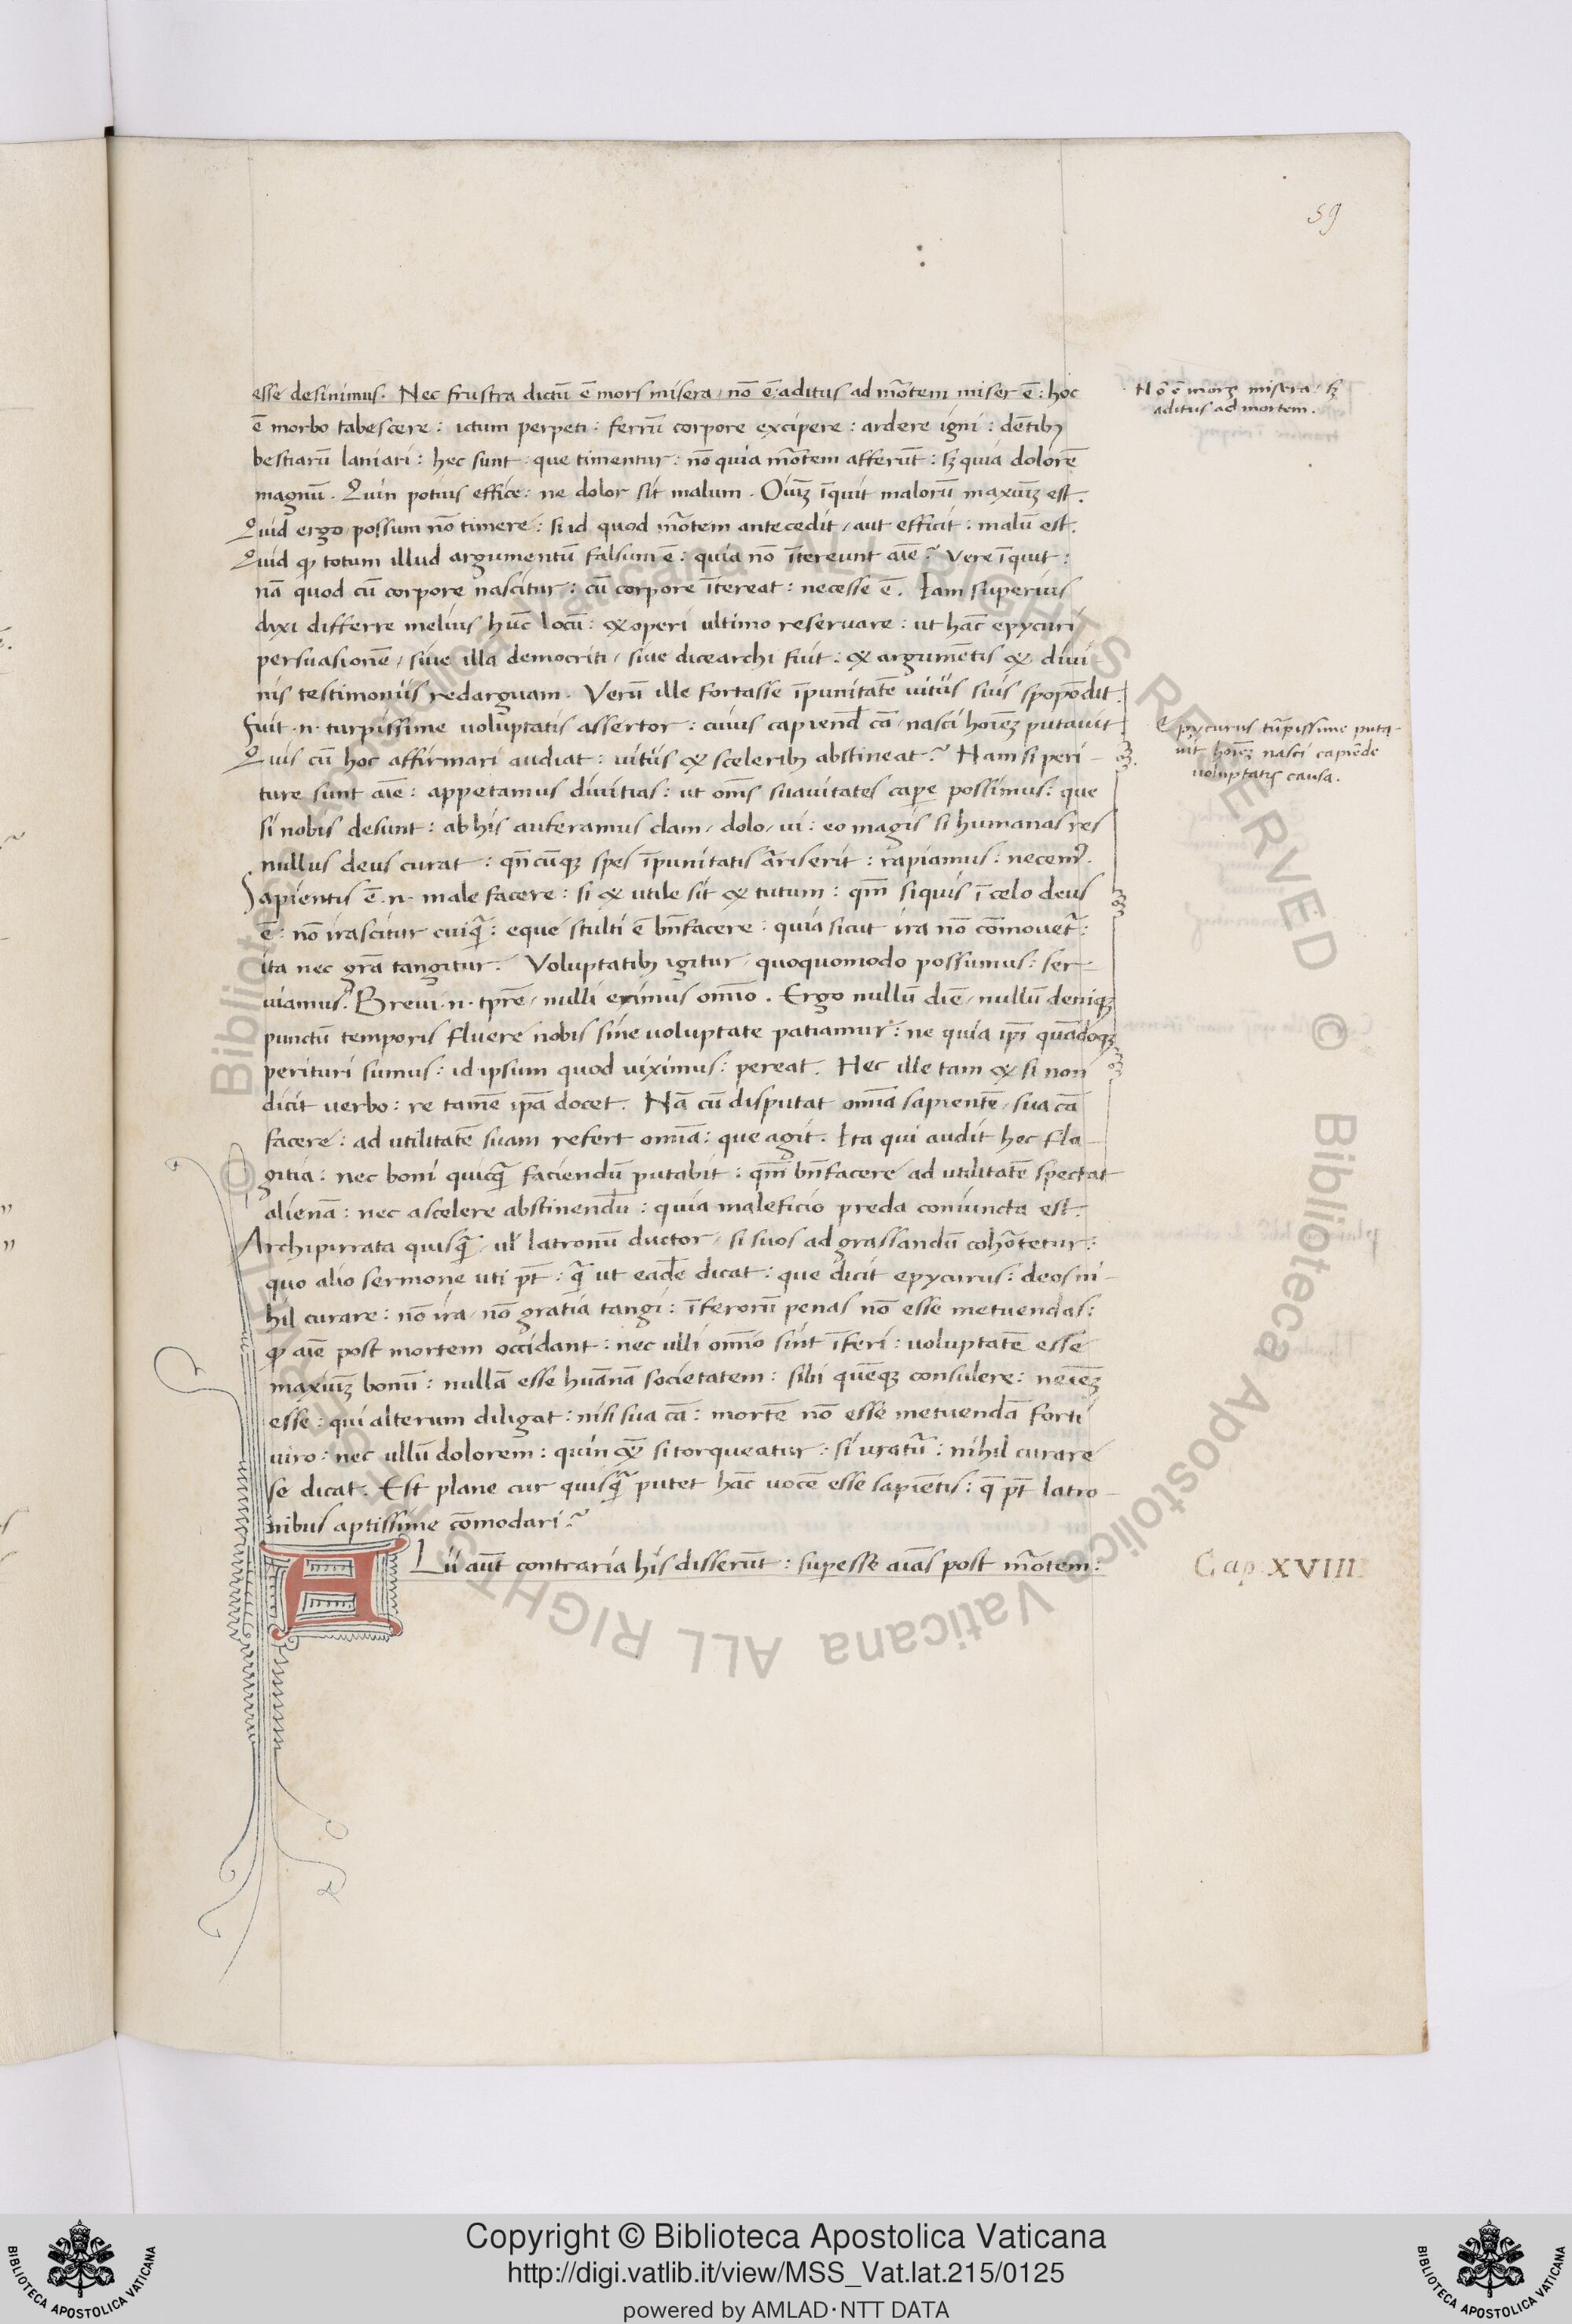 59
esse desinimus. Nec frustra dictū ē mors misera, nō ē: aditus ad mōtem miser ē: hoc
ē morbo tabescere: ictum perpeti: ferrū corpore excipere: ardere igni: dētibꝫ
bestiarū laniari: hec sunt que timentur: nō quia mōtem afferūt: sꝫ quia dolorē
magnū. Quin potius effice: ne dolor sit malum. Oīuꝫ īquit malorū maxiuꝫ est.
Quid ergo possum nō timere: si id quod mōtem antecedit, aut efficit: malū est.
Quid ꝙ totum illud argumentū falsum ē: quia nō ītereunt aīe? Vere īquit:
nā quod cū corpore nascitur: cū corpore ītereat: necesse ē. Iam superius
dixi differre melius hūc locū: & operi ultimo reservare: ut hāc epycuri
persuasionē, sive illa democriti, sive dicearchi fuit: & argumētis & divi
nis testimoniis redarguam. Verū ille fortasse īpunitatē vitiis suis spopōdit
Fuit .n. turpissime voluptatis assertor: cuius capiend̄ cā, nasci hoīeꝫ putavit
Quis cū hoc affirmari audiat: vitiis & sceleribꝫ abstineat? Nam si peri-
ture sunt aīe: appetamus divitias: ut oīns suavitates capere possimus: que
si nobis desunt: ab his auferamus clam, dolo, vi: eo magis si humanas res
nullus deus curat: qn̄cūqꝫ spes īpunitatis āriserit: rapiamus: necemꝰ.
Sapientis ē .n. male facere: si & utile sit & tutum: qm̄ siquis ī celo deus
ē: nō irascitur cuiq̄: eque stulti ē bn̄facere: quia sicut ira nō cōmovet̄:
ita nec grā tangitur. Voluptatibꝫ igitur, quoquomodo possumus: ser-
viamus. Brevi .n. tp̄re, nulli erimus oīno. Ergo nullū diē, nullū deniqꝫ
punctū temporis fluere nobis sine voluptate patiamur: ne quia ip̄i quādoqꝫ
perituri sumus: id ipsum quod viximus: pereat. Hec ille tam & si non
dicit verbo: re tamē ip̄a docet. Nā cū disputat omīa sapientē, sua cā
facere: ad utilitatē suam refert omīa: que agit. Ita qui audit hec fla-
gitia: nec boni quicq̄ faciendū putabit: qm̄ bn̄facere ad utilitatē spectat
alienā: nec a scelere abstinendū: quia maleficio preda coniuncta est.
Archipirrata quisq̄, ul̄ latronū ductor, si suos ad grassandū cohōtetur:
quo alio sermone uti pt̄: q̄ ut eadē dicat: que dicit epycurus: deos ni-
hil curare: nō ira, nō gratia tangi: īferorū penas nō esse metuendas:
ꝙ aīe post mortem occidant: nec ulli oīno sint īferi: voluptatē esse
maxiuꝫ bonū: nullā esse huānā societatem: sibi quēqꝫ consulere: neīeꝫ
esse: qui alterum diligat: nisi sua cā: mortē nō esse metuendā forti
viro: nec ullū dolorem: quin & si torqueatur: si uratū: nihil curare
se dicat. Est plane cur quisq̄ putet hāc vocē esse sapiētis: q̄ pt̄ latro-
nibus aptissime cōmodari?
ALii aūt contraria his disserūt: superesse aīas post mōtem:
Nō ē mors misera, sꝫ
aditus ad mortem.
Epycurus tūpissime puta-
vit hoīeꝫ nasci capiēde
voluptatis causa.
Cap. XVIII
Copyright © Biblioteca Apostolica Vaticana
http://digi.vatlib.it/view/MSS_Vat.lat.215/0125
powered by AMLAD·NTT DATA
BIBLIOTECA APOSTOLICA VATICANA
BIBLIOTECA APOSTOLICA VATICANA
© Biblioteca Apostolica Vaticana ALL RIGHTS RESERVED © Biblioteca Apostolica Vaticana ALL RIGHTS RESERVED